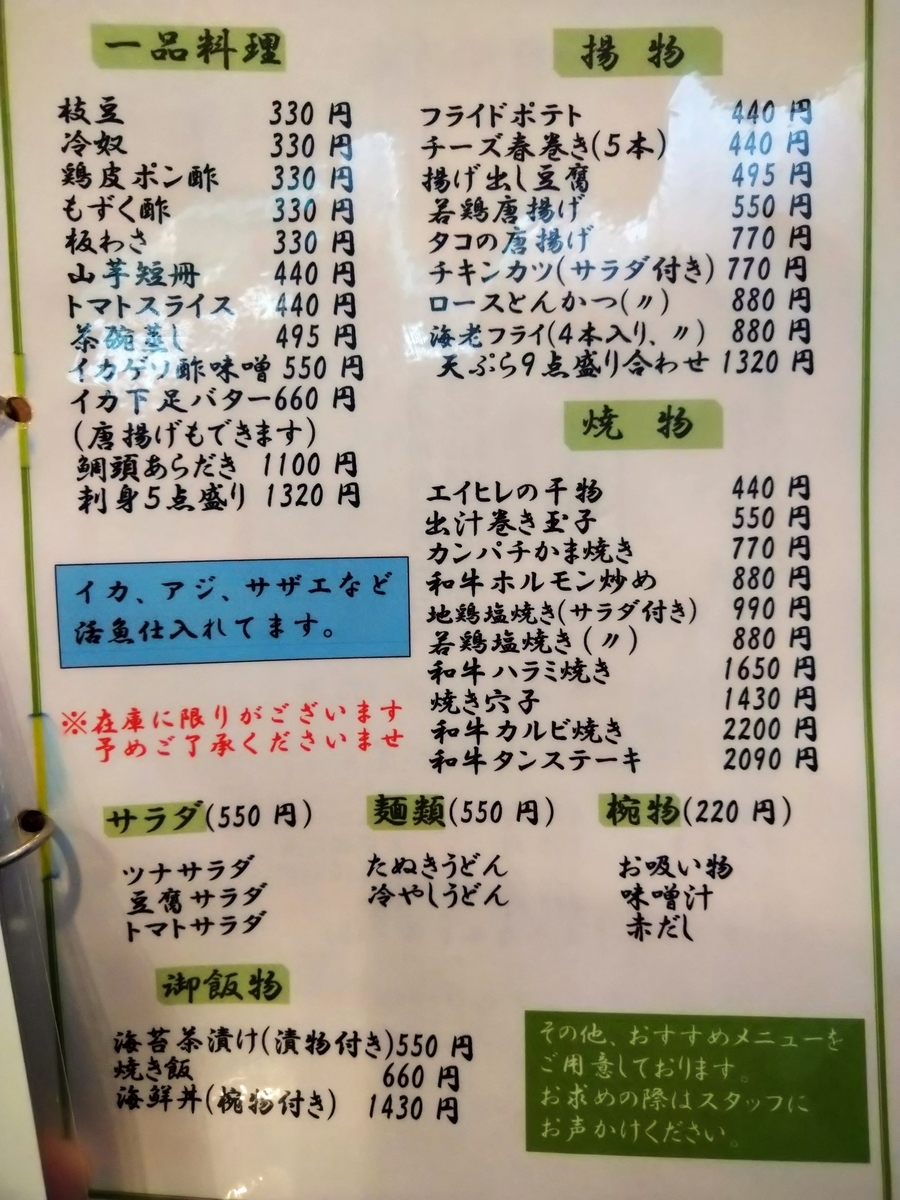 一品料理
枝豆 330 円
冷奴 330 円
鶏皮ポン酢 330 円
もずく酢 330 円
板わさ 330 円
山芋短冊 440 円
トマトスライス 440 円
茶碗蒸し 495 円
イカゲソ酢味噌 550 円
イカ下足バター 660 円
(唐揚げもできます)
鯛頭あらだき 1100 円
刺身5点盛り 1320 円
イカ、アジ、サザエなど
活魚仕入れてます。
※在庫に限りがございます
予めご了承くださいませ
揚物
フライドポテト 440 円
チーズ春巻き(5本) 440 円
揚げ出し豆腐 495 円
若鶏唐揚げ 550 円
タコの唐揚げ 770 円
チキンカツ(サラダ付き) 770 円
ロースとんかつ(〃) 880 円
海老フライ(4本入り、〃) 880 円
天ぷら9点盛り合わせ 1320 円
焼物
エイヒレの干物 440 円
出汁巻き玉子 550 円
カンパチかま焼き 770 円
和牛ホルモン炒め 880 円
地鶏塩焼き(サラダ付き) 990 円
若鶏塩焼き(〃) 880 円
和牛ハラミ焼き 1650 円
焼き穴子 1430 円
和牛カルビ焼き 2200 円
和牛タンステーキ 2090 円
サラダ(550 円)
ツナサラダ
豆腐サラダ
トマトサラダ
麺類(550 円)
たぬきうどん
冷やしうどん
椀物(220 円)
お吸い物
味噌汁
赤だし
御飯物
海苔茶漬け(漬物付き)550 円
焼き飯 660 円
海鮮丼(椀物付き) 1430 円
その他、おすすめメニューを
ご用意しております。
お求めの際はスタッフに
お声かけください。